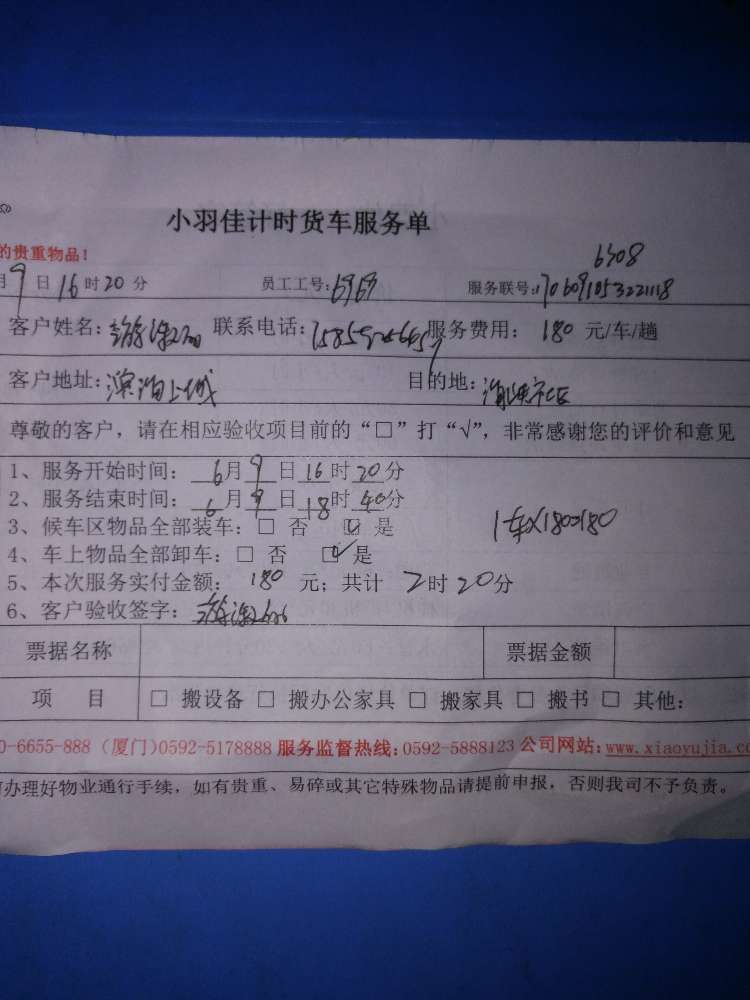 小羽佳计时货车服务单
的贵重物品！
6308
月9日16时20分 员工工号：6969 服务联号：170609105322118
客户姓名： 联系电话： 服务费用：180元/车/趟
客户地址：滨海上城 目的地：
尊敬的客户，请在相应验收项目前的“□”打“√”，非常感谢您的评价和意见
1、服务开始时间：6月9日16时20分
2、服务结束时间：6月9日18时40分
3、候车区物品全部装车：□ 否 ☑ 是
1车X180=180
4、车上物品全部卸车：□ 否 ☑ 是
5、本次服务实付金额：180元；共计2时20分
6、客户验收签字：
票据名称 票据金额
项 目 □ 搬设备 □ 搬办公家具 □ 搬家具 □ 搬书 □ 其他：
0-6655-888（厦门）0592-5178888 服务监督热线：0592-5888123 公司网站：www.xiaoyujia.co
办理好物业通行手续，如有贵重、易碎或其它特殊物品请提前申报，否则我司不予负责。